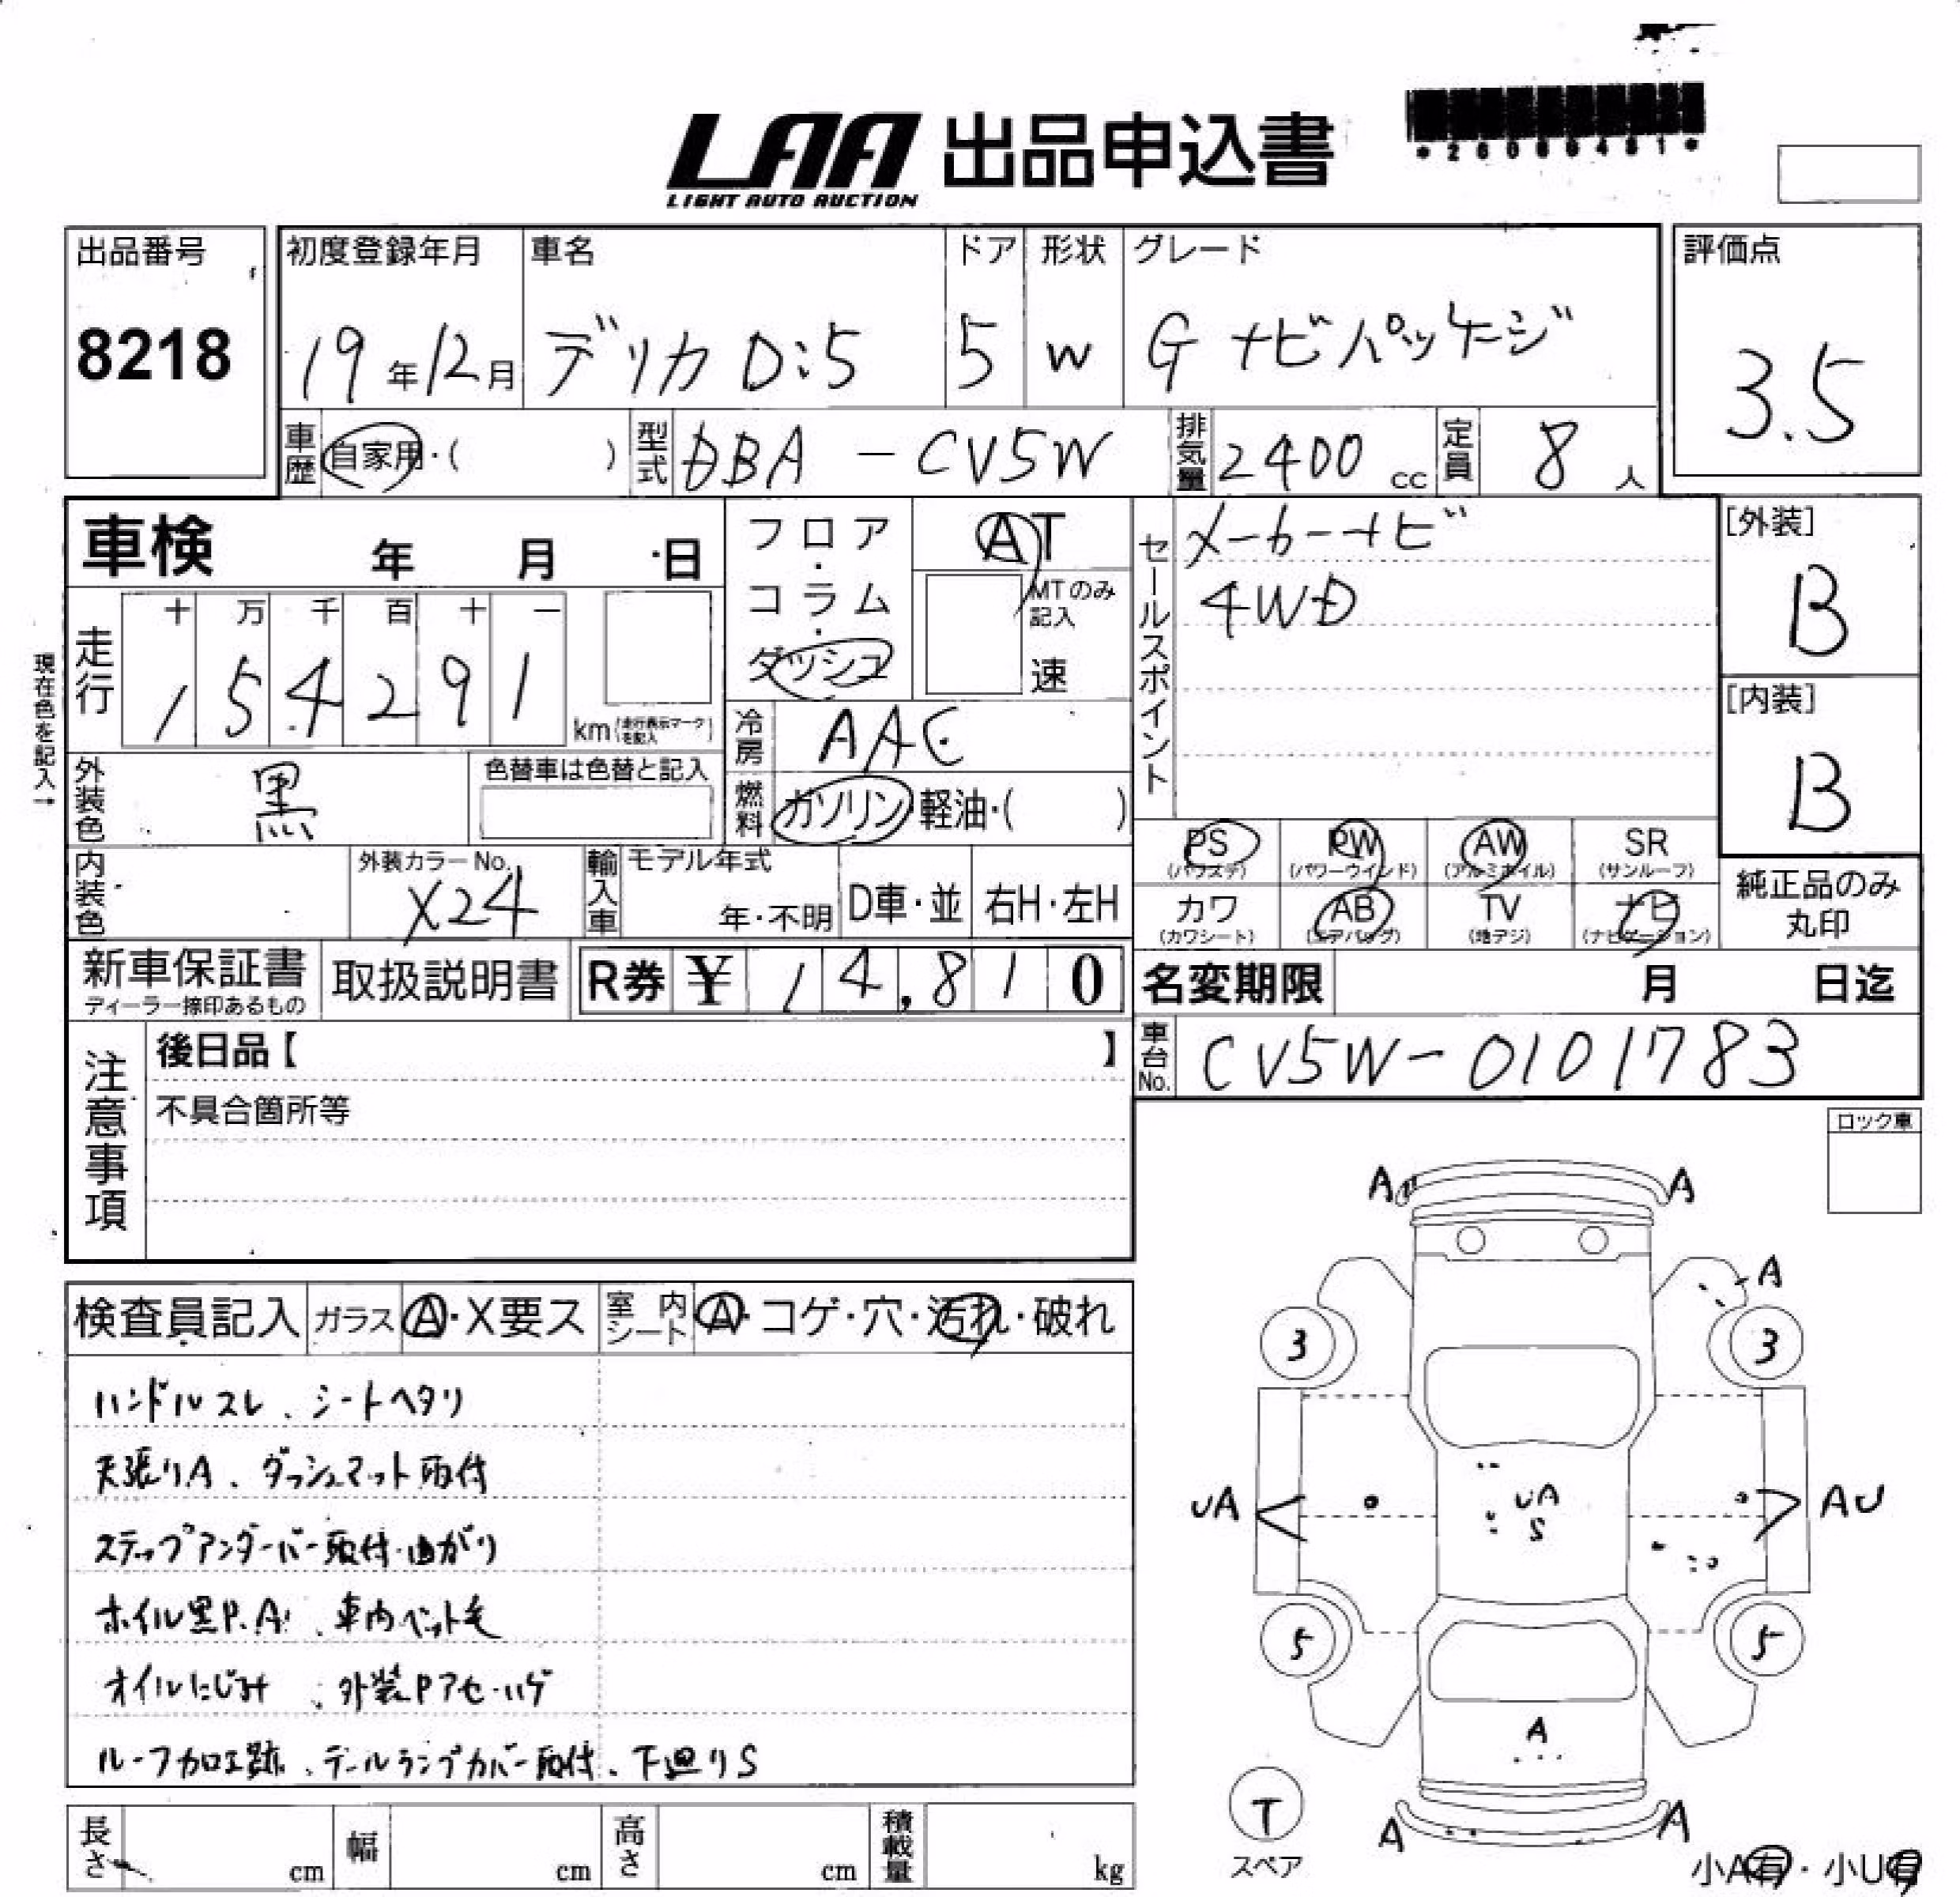 LAA 出品申込書
LIGHT AUTO AUCTION
出品番号
8218
初度登録年月
19年12月
車名
デリカ D:5
ドア
5
形状
W
グレード
G ナビパッケージ
評価点
3.5
車歴 自家用・( )
型式 DBA - CV5W
排気量 2400 cc
定員 8 人
車検 年 月 日
フロア・コラム・ダッシュ
AT
MTのみ記入
速
セールスポイント
メーカーナビ
4WD
[外装]
B
[内装]
B
現在色を記入→
走行
十 万 千 百 十 一
1 5 4 2 9 1
km (走行表示マークを記入)
冷房 AAC
燃料 ガソリン・軽油・( )
外装色 黒
色替車は色替と記入
PS (パワステ)
PW (パワーウインド)
AW (アルミホイル)
SR (サンルーフ)
カワ (カワシート)
AB (エアバッグ)
TV (地デジ)
ナビ (ナビゲーション)
純正品のみ丸印
内装色
外装カラーNo.
X24
輸入車
モデル年式
年・不明
D車・並
右H・左H
新車保証書
ディーラー捺印あるもの
取扱説明書
R券 ¥ 14,810
名変期限 月 日迄
車台No. CV5W-0101783
注意事項
後日品【 】
不具合箇所等
ロック車
検査員記入
ガラス A・X要ス
室内シート A・コゲ・穴・汚れ・破れ
ハンドルスレ、シートヘタリ
天張りA、ダッシュマット取付
ステップアンダーバー取付・曲がり
ホイル黒P.A、車内ペット毛
オイルにじみ、外装Pアセ・ハゲ
ルーフ加工跡、テールランプカバー取付、下廻りS
A A
A
3 3
UA
UA
S
AU
5 5
A
T
スペア
A A
小A有・小U有
長さ cm
幅 cm
高さ cm
積載量 kg